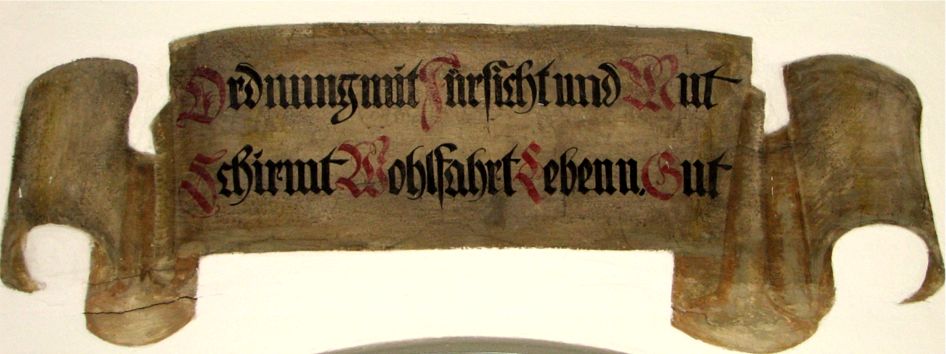 Ordnung mit Fürsicht und Mut
Schirmt Wohlfahrt Leben u. Gut